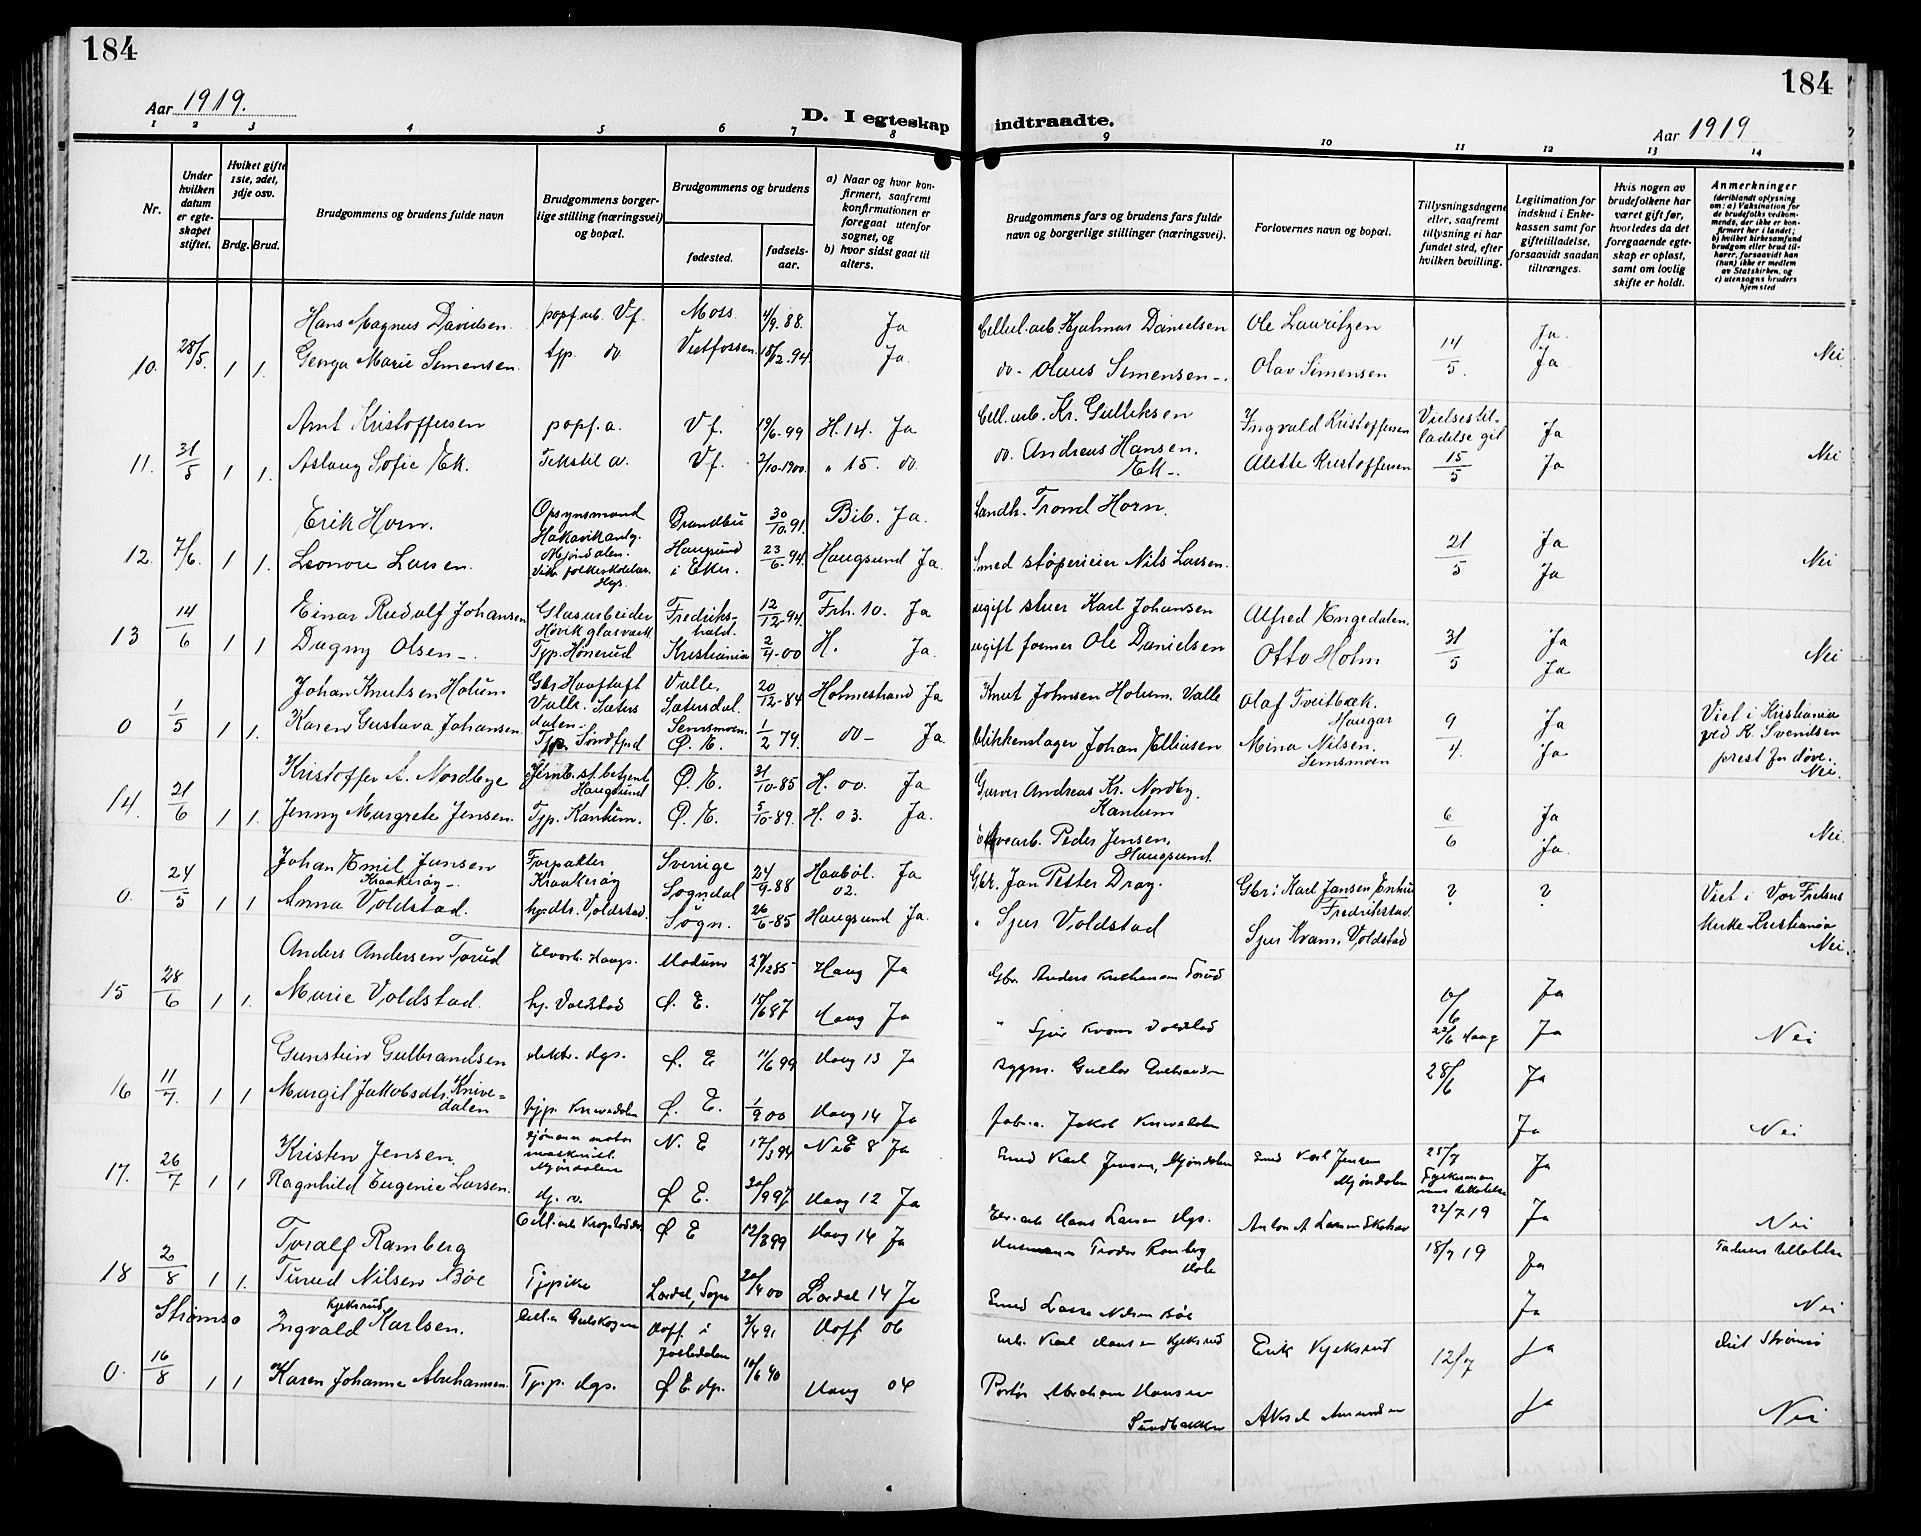 184
184
Aar 1919.
D. I egteskap indtraadte.
Aar 1919
1 2 3 4 5 6 7 8 9 10 11 12 13 14
Nr.
Under hvilken datum er egteskapet stiftet.
Hvilket gifte 1ste, 2det, 3dje osv.
Brdg. Brud.
Brudgommens og brudens fulde navn
Brudgommens borgerlige stilling (næringsvei) og bopæl.
Brudgommens og brudens
fødested.
fødselsaar.
a) Naar og hvor konfirmert, saafremt konfirmationen er foregaat utenfor sognet, og
b) hvor sidst gaat til alters.
Brudgommens fars og brudens fars fulde navn og borgerlige stillinger (næringsvei).
Forlovernes navn og bopæl.
Tillysningsdagene eller, saafremt tillysning ei har fundet sted, efter hvilken bevilling.
Legitimation for indskud i Enkekassen samt for giftetilladelse, forsaavidt saadan tiltrænges.
Hvis nogen av brudefolkene har været gift før, hvorledes da det foregaaende egteskap er opløst, samt om lovlig skifte er holdt.
Anmerkninger (deriblandt oplysning om: a) Vaksination for de brudefolks vedkommende, der ikke er konfirmert her i landet; b) hvilket kirkesamfund brudgom eller brud tilhører, forsaavidt han (hun) ikke er medlem av Statskirken, og c) utensogns bruders hjemsted
Hans Magnus Davidsen popf. arb. Vf. Moss 4/9. 88. Ja Cellul. arb Hjalmar Danielsen Ole Lauritzen Ja
10. 28/5. 1 1. Georga Marie Simensen. tjp. do Vestfossen 18/2. 94. Ja do - Olaus Simensen -. Olav Simensen 14/5. Ja Nei
Arnt Kristoffersen popf. a. Vf. 19/6-99 H. 14. Ja Cell. arb. Kr. Gulliksen Ingvald Kristoffersen Vielsestilladelse git Ja
11. 31/5 1 1. Aslaug Sofie Ek. Tekstil a. Vf. 2/10-1900. " 15. do do. Andreas Hansen. Ek -. Alette Kristoffersen 15/5 Ja Nei
Erik Horn. Opsynsmand Hakavikanlg. Mjøndalen. Brandbu 30/10. 91. Bib. Ja. Landh. Trond Horn. Ja
12. 7/6. 1 1. Leonore Larsen. Vik. folkeskolelær. Hgs. Haugsund i Eker. 23/6. 94. Haugsund Ja. Smed støperieier Nils Larsen. 21/5 Ja Nei
Einar Rudolf Johansen Glasarbeider Høvik glasværk Fredrikshald. 12/12-94. Frh. 10. Ja ugift stuer Karl Johansen Alfred Engedalen. Ja
13 14/6 1 1 Dagny Olsen -. Tjp. Hønerud Kristiania 2/4-00 H. Ja. ugift former Ole Danielsen Otto Holm 31/5 Ja Nei
Johan Knutsen Hotum Gbr Haaftoft Valle. Sætersdalen - Valle, Sætersdal. 20/12-84 Holmestrand Ja Knut Johnsen Hotum. Valle Olaf Tveitbæk. Haugar Ja Viet i Kristiania ved K. Svendsen prest for døve.
0 1/5 1 1. Karen Gustava Johansen. Tjp. Semsmoen. Ø. E. 1/2 79. do - Ja. blikkenslager Johan Eliasen Mina Nilsen. Semsmoen 9/4. Ja Nei.
Kristoffer A. Nordbye Jernb. st. betjent Haugsund Ø. E. 31/10-85 H. 00. Ja Garver Andreas Kr. Nordby. Kantum Ja
14. 21/6 1 1. Jenny Margrete Jensen. Tjp. Kantum. Ø. E. 5/10-89. H. 03. Ja. Peder Jensen, Haugsund 6/6 Ja. Nei
Johan Emil Jansen Kraakerøy -. Forpakter Kraakerøy Sverrige 24/9-88 Haabøl. 02. Ja Gbr. Jan Petter Dray. Gbr: Karl Jansen, Fredrikstad. Viet i Vor Frelsers kirke Kristiania
0. 24/5 1 1 Anna Voldstad. hjp. dtr. Voldstad. Sogndal Sogn. 26/6-85 Haugsund Ja. " Sjur Voldstad Sjur Kvam. Voldstad ? ? Nei.
Anders Andersen Torud Elvarb. Haugs. Modum 27/12 85 Haug Ja Gbr. Anders Kristiansen Torud Ja
15 28/6 1 1. Marie Voldstad. hj. Voldstad Ø. E. 15/6 87 Haug Ja " Sjur Kvam Voldstad 10/6 22/6 Haug Ja Nei
Gunstein Gulbrandsen elektr. Hgs. Ø. E 11/6 99 Haug 13 Ja Bygm. Gustav Gulbrandsen 28/6 Ja
16 11/7. 1 1 Margit Jakobsdtr. Knivedalen tjp. Knivedalen Ø. E. 1/9 00 Haug 14 Ja Fab. a. Jakob Knivedalen Ja Nei
Kristen Jensen sjømann motormaskinist. Mjøndalen N. E 17/3 94 N. E 8 Ja Smed Karl Jensen, Mjøndalen Smed Karl Jensen Mjøndalen 25/7 Ja
17. 26/7 1 1 Ragnhild Eugenie Larsen. Ø E. 20/9 97 Haug 12 Ja Elv. arb Hans Larsen Hgs. Anton A Larsen 22/7 19 Ja Nei
Toralf Ramberg Cell. arb Krogstad Ø E 12/8 99 Haug 14 Ja Husmann Teodor Ramberg 18/7 19 Ja
18 2/8 1 1. Turid Nilsen Bøe Tjpike Lærdal, Sogn 20/4 00 Lærdal 14 Ja Smed Lasse Nilsen Bøe Ja Nei
Strømsø Ingvald Kjeksrud Karlsen. Cell. a Gulskogen Hoff i Jarlsberg 3/4 91 Hoff 06 arb. Karl Hansen Kjeksrud Erik Kjeksrud 12/7 Ja Viet Strømsø
0. 16/8 1 1 Karen Johanne Abrahamsen. Tjp. Hgs. Ø E 10/6 90 Haug 04 Portør Abraham Hansen Sundbakken Aksel Ja Nei